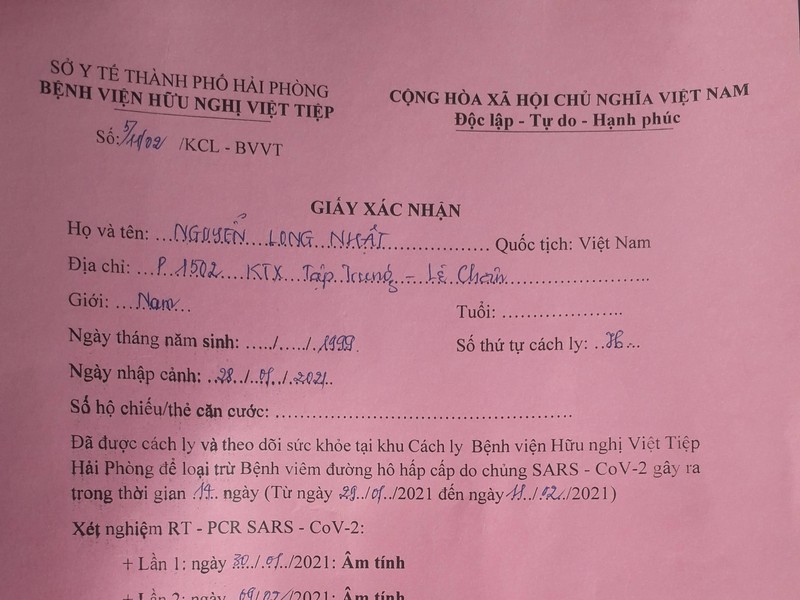 SỞ Y TẾ THÀNH PHỐ HẢI PHÒNG
BỆNH VIỆN HỮU NGHỊ VIỆT TIỆP
CỘNG HÒA XÃ HỘI CHỦ NGHĨA VIỆT NAM
Độc lập - Tự do - Hạnh phúc
Số: /KCL - BVVT
GIẤY XÁC NHẬN
Họ và tên: ...NGUYỄN....LONG...NHẤT................... Quốc tịch: Việt Nam
Địa chỉ: ...P. 1502....KTX...Tập Trung - Lê Chân..........................
Giới: ....Nam...
Tuổi: .....................
Ngày tháng năm sinh: ...../...../.1999.
Số thứ tự cách ly:
Ngày nhập cảnh: ..28../..01../.2021..
Số hộ chiếu/thẻ căn cước: .....................................................
Đã được cách ly và theo dõi sức khỏe tại khu Cách ly Bệnh viện Hữu nghị Việt Tiệp
Hải Phòng để loại trừ Bệnh viêm đường hô hấp cấp do chủng SARS - CoV-2 gây ra
trong thời gian .14.. ngày (Từ ngày 29../01../2021 đến ngày 11../.02../2021)
Xét nghiệm RT - PCR SARS - CoV-2:
+ Lần 1: ngày 30../.01../2021: Âm tính
+ Lần 2: ngày /2021: Âm tính